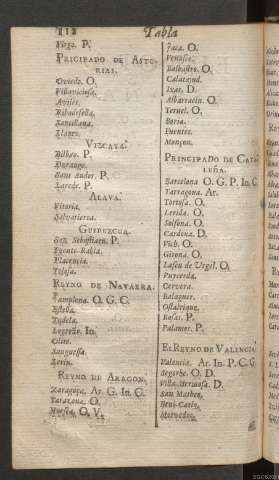 112 Tabla
Vigo. P.
PRICIPADO DE ASTU-
RIAS.
Oviedo. O.
Villaviciosa.
Aviles.
Ribadesella.
Santillana.
Llanes.
VIZCAYA.
Bilbao. P.
Durango.
Sant Ander. P.
Laredo. P.
ALAVA.
Vitoria.
Salvatierra.
GUIPUZCUA.
San Sebastian. P.
Fuente-Rabia.
Placencia.
Tolosa.
REYNO DE NAVARRA.
Pamplona. O. G. C.
Estella.
Tudela.
Logroño. In.
Olite.
Sanguesa.
REYNO DE ARAGON.
Zaragoça. Ar. G. In. C.
Tarazona. O.
Huesca. O. V.
Jaca. O.
Balbastro. O.
Calataiud.
Ixar. D.
Albarracin. O.
Teruel. O.
Boria.
Fuentes.
Monçon.
PRINCIPADO DE CATA-
LUÑA.
Barcelona O. G. P. In. C.
Tarragona. Ar.
Tortosa. O.
Lerida. O.
Solsona. O.
Cardona. D.
Vich. O.
Girona. O.
Laseu de Urgel. O.
Puycerda.
Cervera.
Balaguer.
Ostalrique.
Rosas. P.
Palamos. P.
EL REYNO DE VALENCIA.
Valencia. Ar. In. P. C. G.
Segorbe. O. D.
Villa-Hermosa. D.
San Matheo.
Beni-Carlo.
Morvedro.